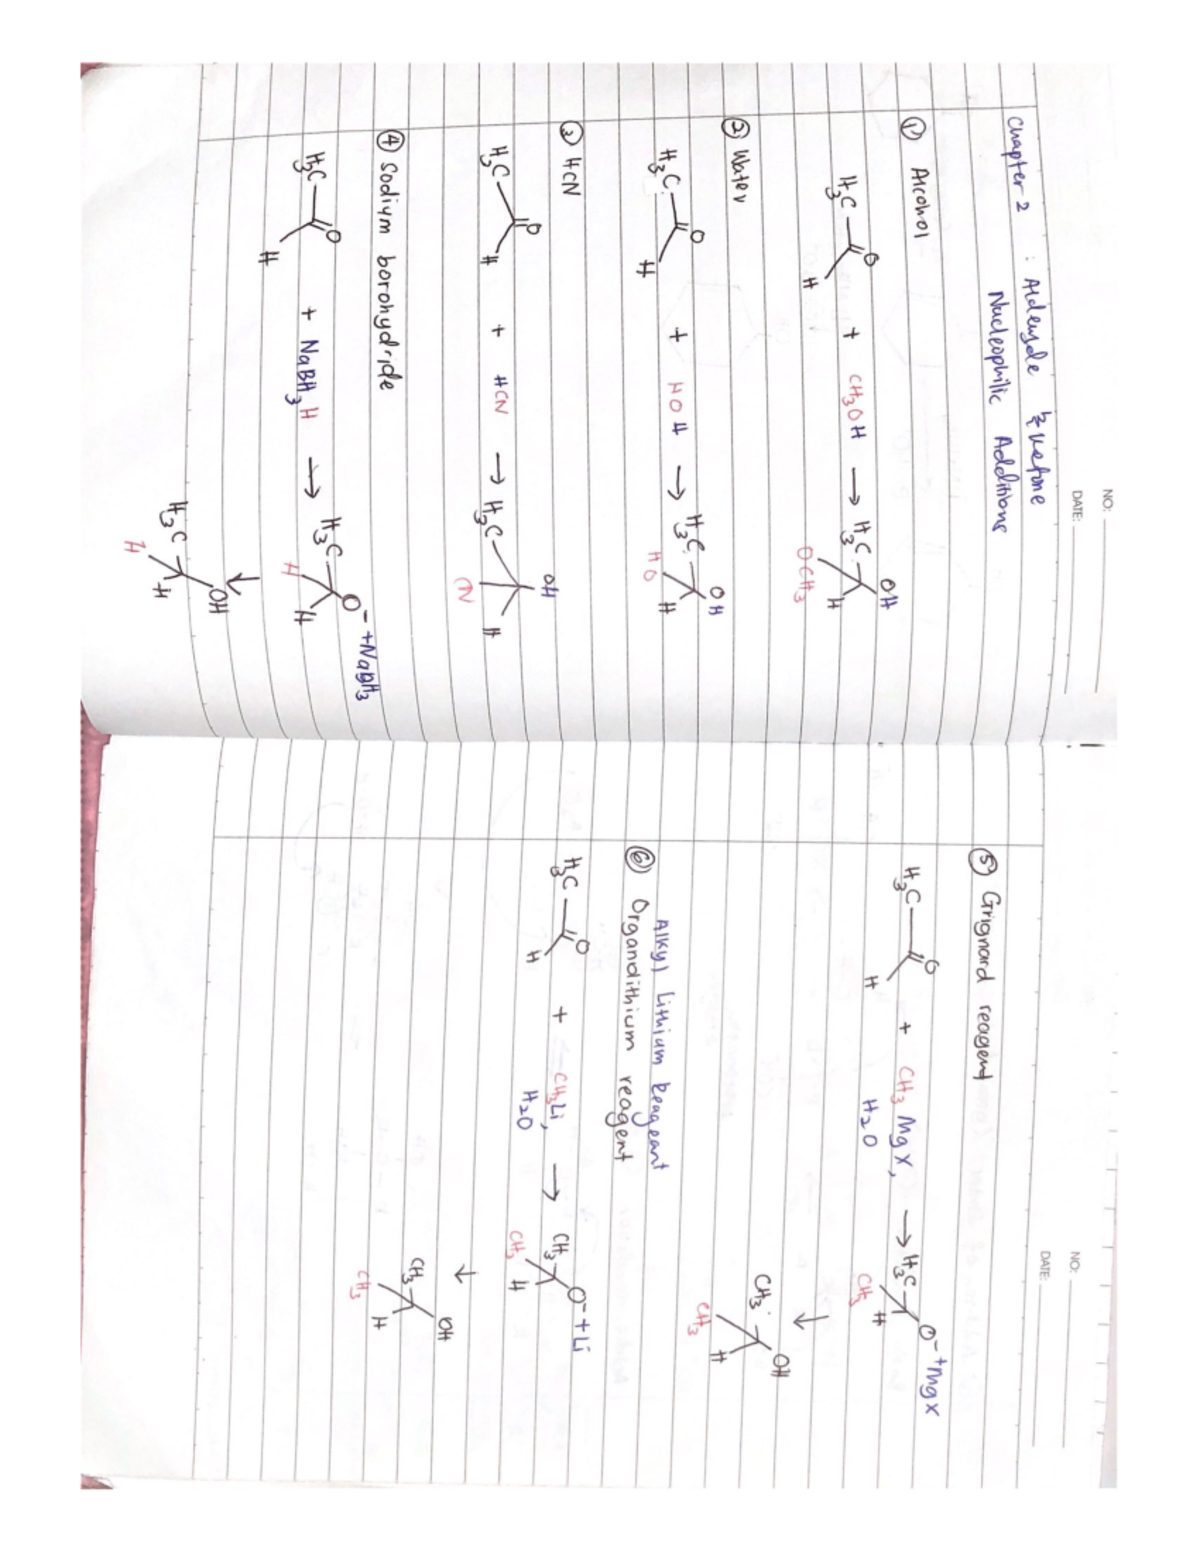 NO:
DATE:
Chapter 2 : Aldehyde & Ketone
Nucleophilic Additions
① Alcohol
H₃C O H + CH₃OH → H₃C OH H OCH₃
② Water
H₃C O H + HOH → H₃C OH H HO
③ HCN
H₃C O H + HCN → H₃C OH H CN
④ Sodium borohydride
H₃C O H + NaBH₃H → H₃C O⁻ +NaBH₃ H H
↓
H₃C OH H H
NO:
DATE:
⑤ Grignard reagent
H₃C O H + CH₃MgX, H₂O → H₃C O⁻ ⁺MgX CH₃ H
↓
CH₃ OH CH₃ H
Alkyl Lithium Reageant
⑥ Organolithium reagent
H₃C O H + CH₃Li, H₂O → CH₃ O⁻ +Li CH₃ H
↓
CH₃ OH CH₃ H